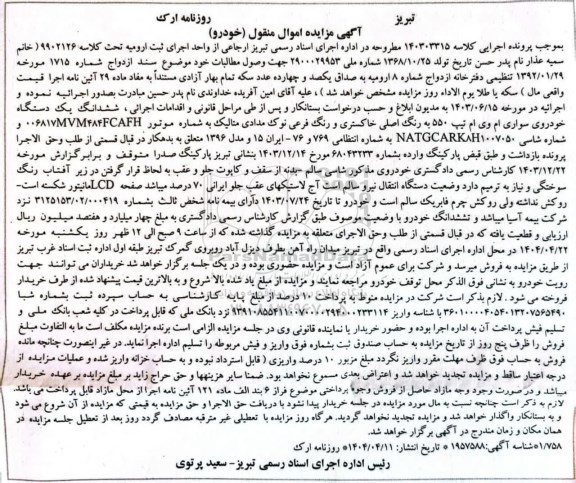 تبریز
روزنامه ارک
آگهی مزایده اموال منقول (خودرو)
بموجب پرونده اجرایی کلاسه ۱۴۰۳۰۳۳۱۵ مطروحه در اداره اجرای اسناد رسمی تبریز ارجاعی از واحد اجرای ثبت ارومیه تحت کلاسه ۹۹۰۲۱۲۶ ( خانم
سمیه عذار نام پدر حسن تاریخ تولد ۱۳۶۸/۱۰/۲۵ شماره ملی ۲۹۰۰۰۲۹۹۵۳ جهت وصول مطالبات خود موضوع سند ازدواج شماره ۱۷۱۵ مورخه
۱۳۹۲/۰۱/۲۹ تنظیمی دفترخانه ازدواج شماره ۸ ارومیه به صداق یکصد و چهارده عدد سکه تمام بهار آزادی مستنداً به مفاد ماده ۲۹ آئین نامه اجرا قیمت
واقعی مال ) سکه یا طلا یوم الاداء روز مزایده مشخص خواهد شد )، علیه آقای امین آفریده خداوندی نام پدر حسین مبادرت بصدور اجرائیه نموده و
اجرائیه در مورخه ۱۴۰۳/۰۶/۱۵ به مدیون ابلاغ و حسب درخواست بستانکار و پس از طی مراحل قانونی و اقدامات اجرائی، ششدانگ یک دستگاه
خودروی سواری ام وی ام تیپ ۵۵۰ به رنگ اصلی خاکستری و رنگ فرعی نوک مدادی متالیک به شماره موتور MVM۴۸۴FCAFH۰۰۶۸۱۷ و
شماره شاسی NATGCARK۸H۱۰۰۷۰۵۰ به شماره انتظامی ۷۶۹ و ۷۶- ایران ۱۵ و مدل ۱۳۹۶ متعلق به بدهکار در قبال قسمتی از طلب وحق الاجرا
پرونده بازداشت و طبق قبض پارکینگ وارده بشماره ۶۸۰۴۳۲۳۳ مورخ ۱۴۰۳/۱۲/۱۴ بنشانی تبریز پارکینگ صدرا متوقف و برابرگزارش مورخه
۱۴۰۳/۱۲/۲۲ کارشناس رسمی دادگستری خودروی مذکور شاسی سالم -بدنه از سقف و کاپوت جلو و عقب به لحاظ قرار گرفتن در زیر آفتاب رنگ
سوختگی و نیاز به ترمیم دارد وضعیت دستگاه انتقال نیرو سالم است آج لاستیکهای عقب جلو ایرانی ۷۰ درصد میباشد صفحه LCDمانیتور شکسته است-
روکش نداشته ولی روکش چرم فابریک سالم است و خودرو تا تاریخ ۱۴۰۳/۰۷/۲۴ دآرای بیمه نامه شخص ثالث بشماره ۳۱۲۵۱۵۳/۰۲/۰۰۰۴۱۹ نزد
شرکت بیمه آسیا میباشد و تششدانگ خودرو با وضعیت موصوف طبق گزارش کارشناس رسمی دادگستری به مبلغ چهار میلیارد و هفتصد میلیون ریال
ارزیابی و قطعیت یافته که در قبال قسمتی از طلب وحق الاجرای متعلقه به مزایده گذاشته شده که از ساعت ۹ صبح الی ۱۲ ظهر روز یکشنبه مورخه
۱۴۰۴/۰۴/۲۲ در محل اداره اجرای اسناد رسمی واقع در تبریز میدان راه آهن بطرف دیزل آباد روبروی گمرک تبریز طبقه اول اداره ثبت اسناد غرب تبریز
از طریق مزایده به فروش میرسد و شرکت برای عموم آزاد است و مزایده حضوری بوده و در یک جلسه برگزار خواهد شد خریداران می توانند جهت
رویت خودرو به نشانی فوق الذکر محل توقف خودرو مراجعه نمایند و مزایده از مبلغ یاد شده بالا شروع و به بالاترین قیمت پیشنهاد شده از طرف خریدار
فروخته می شود . لازم بذکر است شرکت در مزایده منوط به پرداخت ۱۰ درصد از مبلغ پایه کارشناسی به حساب سپرده ثبت بشماره شبا
نزد بانک ملی که قابل پرداخت در کلیه شعب بانک ملی و
تسلیم فیش پرداخت آن به اداره اجرا بوده و حضور خریدار یا نماینده قانونی وی در جلسه مزایده الزامی است برنده مزایده مکلف است ما به التفاوت مبلغ
فروش را ظرف پنج روز از تاریخ مزایده به حساب صندوق ثبت بشماره فوق واریز و فیش مربوطه را تسلیم اداره اجرا نماید. در غیر اینصورت چنانچه مانده
فروش به حساب فوق ظرف مهلت مقرر واریز نگردد مبلغ مزبور ۱۰ درصد واریزی ( قابل استرداد نبوده و به حساب خزانه واریز شده و عملیات مزایده از
درجه اعتبار ساقط و مزایده تجدید خواهد شد و اعتراض بعدی مسموع نخواهد بود. ضمنا سایر هزینهها و حق حراج زاید بر مبلغ مزایده بر عهده خریدار
میباشد و در صورت وجود وجه مازاد حاصل از فروش وجوه پرداختی موضوع فراز ۶ بند الف ماده ۱۲۱ آئین نامه اجرا از محل مازاد قابل پرداخت می باشد.
لازم به ذکر است چنانچه نسبت به مال مورد مزایده در جلسه خریدار پیدا نشود با دریافت حق الاجرا و حق مزایده به قیمتی که مزایده از آن شروع می شود
و به بستانکار واگذار خواهد شد و مزایده تجدید نخواهد گردید. هرگاه روز مزایده با تعطیلی غیر مترقبه مصادف گردد روز بعد از تعطیل جلسه مزایده در
همان مکان و زمان مندرج در آگهی برگزار خواهد شد.
۱/۷۵۸*شناسه آگهی: ۱۹۵۷۵۸۸* تاریخ انتشار: ۱۴۰۴/۰۴/۱۱* روزنامه ارک
رئیس اداره اجرای اسناد رسمی تبریز- سعید پرتوی